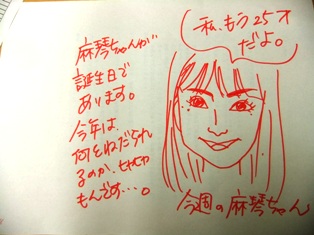 私、もう25才
だよ。
麻琴ちゃんが
誕生日で
あります。
今年は、
何をねだられ
るのか、ヒヤヒヤ
もんです…。
今週の麻琴ちゃん